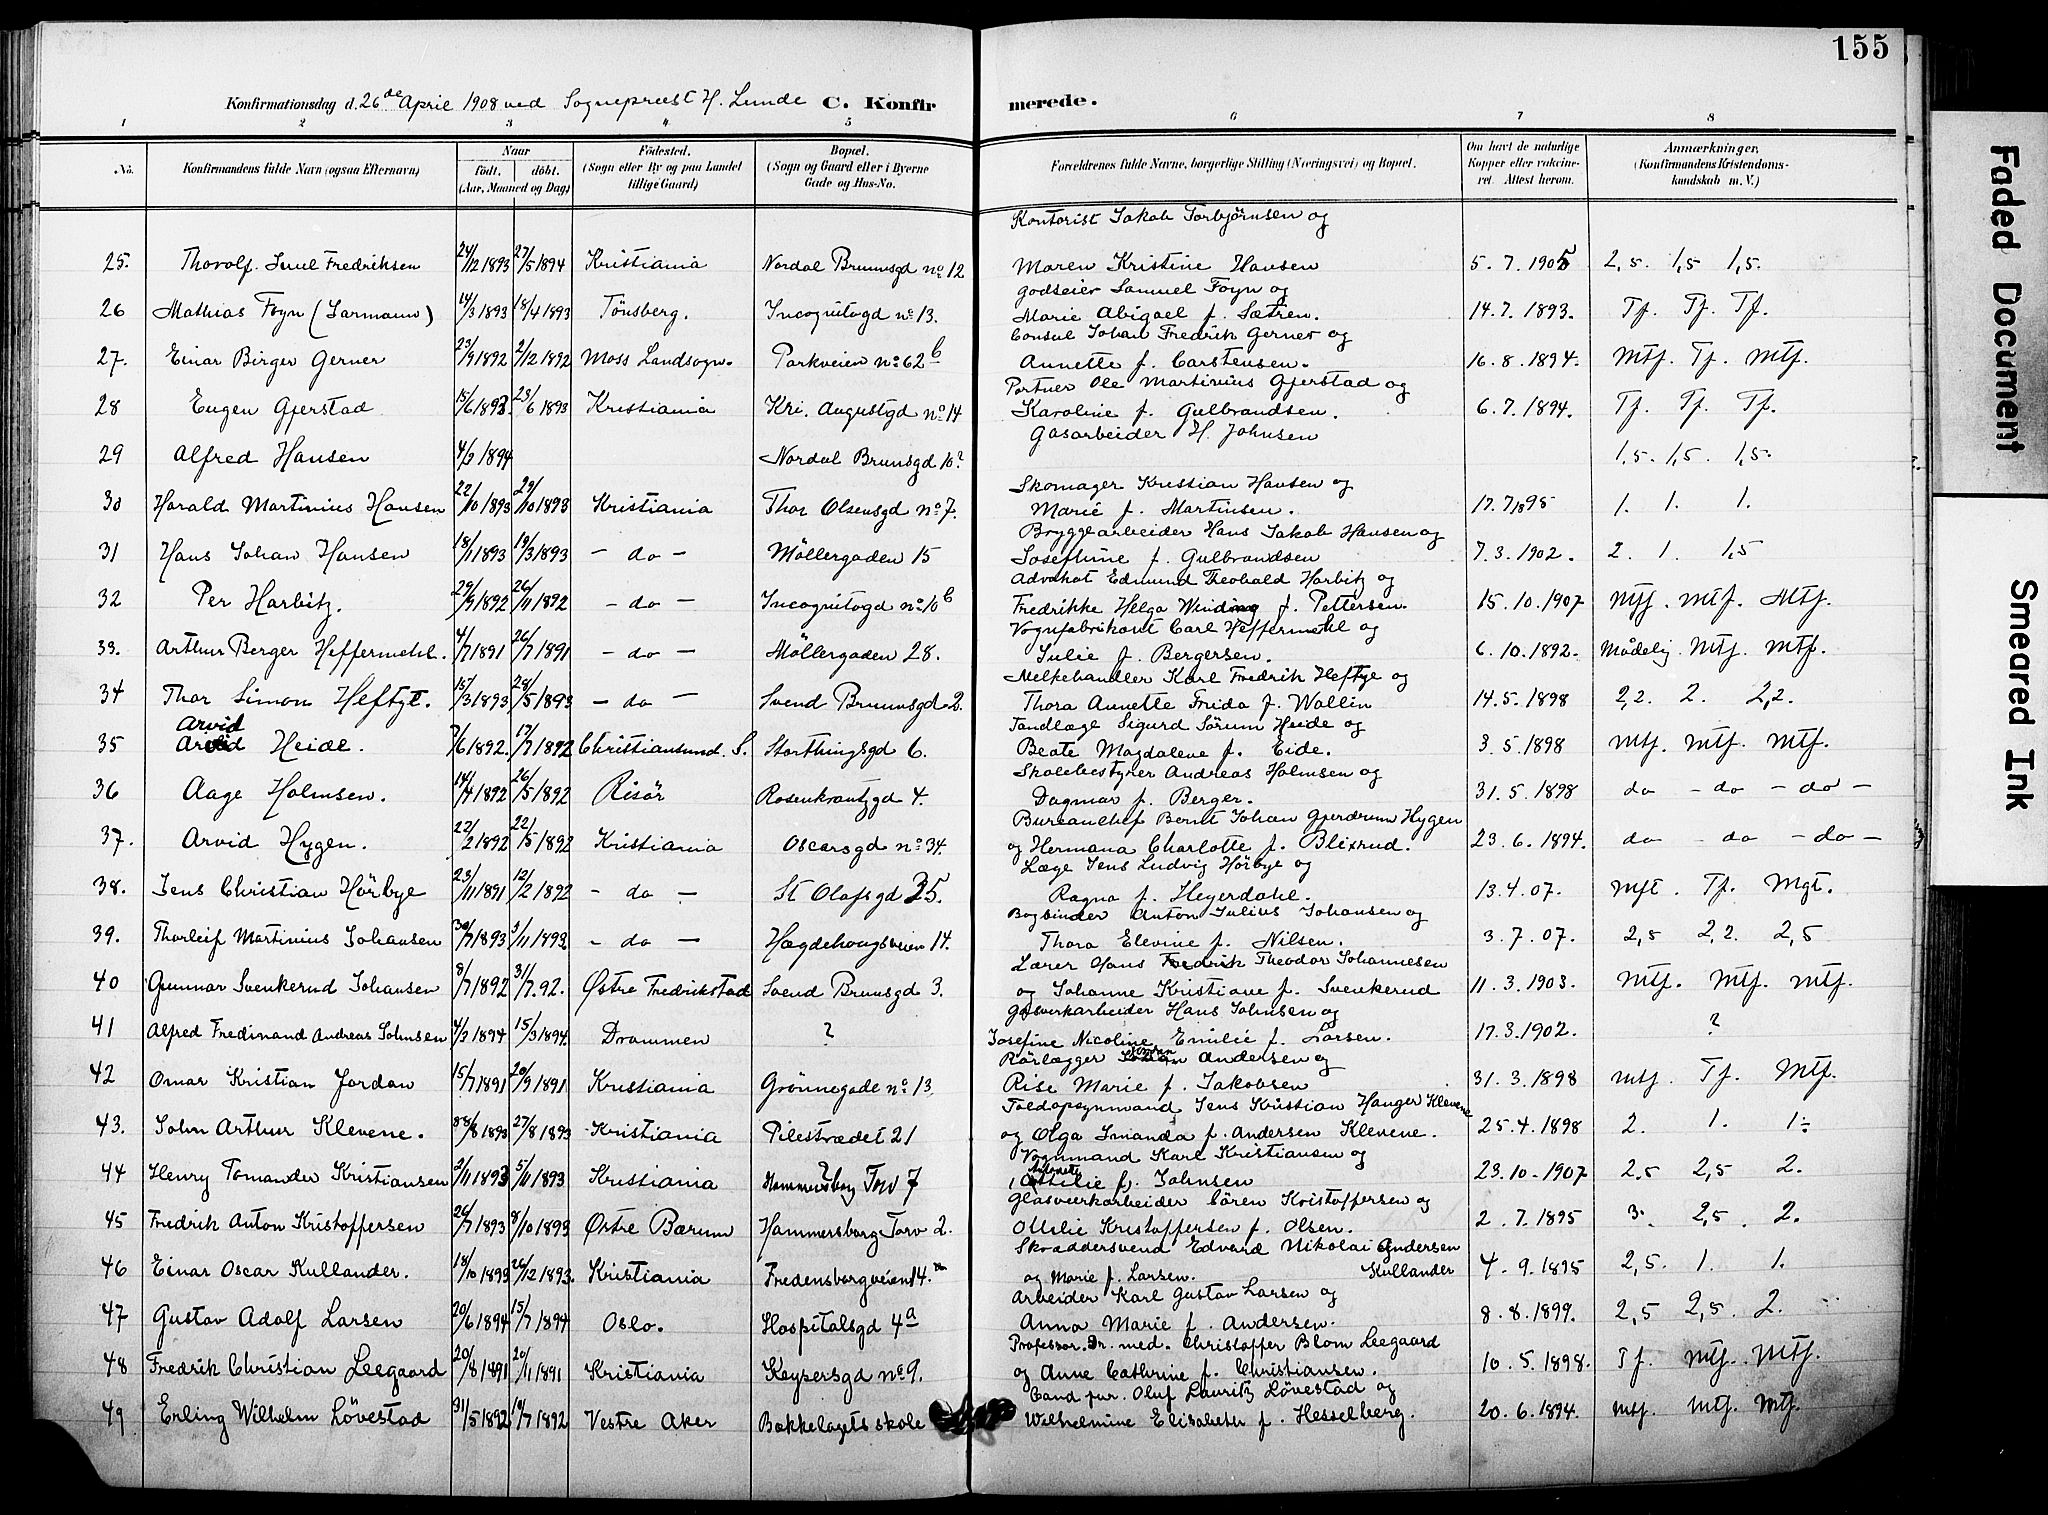 155
Konfirmationsdag d. 26de April 1908 ved Sogneprest H. Lunde C. Konfirmerede.
1 2 3 4 5 6 7 8
No. Konfirmandens fulde Navn (ogsaa Efternavn) Naar født. døbt. (Aar, Maaned og Dag) Fødested. (Sogn eller By og paa Landet tillige Gaard) Bopæl. (Sogn og Gaard eller i Byerne Gade og Hus-No. Forældrenes fulde Navne, borgerlige Stilling (Næringsvei) og Bopæl. Om havt de naturlige Kopper eller vakcineret. Attest herom. Anmærkninger, (Konfirmandens Kristendomskundskab m. V.)
Kontorist Jakob Torbjørnsen og
25. Thorolf Juul Fredriksen 24/12 1893 27/5 1894 Kristiania Nordal Brunsgd no. 12 Maren Kristine Hansen 5. 7. 1905 2,5. 1,5 1,5.
Godseier Samuel Foyn og
26 Mathias Foyn (Jarmann) 14/3 1893 18/4 1893 Tönsberg. Incognitogd no. 13. Marie Abigael f. Sætren. 14. 7. 1893. Tf. Tf. Tf.
Consul Johan Fredrik Gerner og
27. Einar Birger Gerner 23/9 1892 2/12 1892 Moss Landsogn. Parkveien no. 62 b Annette f. Carstensen. 16. 8. 1894. Mtf. Tf. Mtf.
Portner Ole Martinius Gjerstad og
28 Eugen Gjerstad 15/6 1893. 23/6 1893 Kristiania Kri. Augustgd no. 14 Karoline f. Gulbrandsen. 6. 7. 1894. Tf. Tf. Tf.
Gasarbeider H. Johnsen
29 Alfred Hansen 4/3 1894 Nordal Brunsgd 10? 1,5. 1,5. 1,5.
Skomager Kristian Hansen og
30 Harald Martinius Hansen 22/10 1893 29/10 1893 Kristiania Thor Olsensgd no. 7. Marie f. Martinsen. 17. 7 1895 1. 1. 1.
Bryggearbeider Hans Jakob Hansen og
31 Hans Johan Hansen 18/1 1893 19/3 1893 - do - Möllergaden 15 Josefhine f. Gulbrandsen 7. 3. 1902. 2. 1. 1,5
Advokat Edmund Theobald Harbitz og
32 Per Harbitz. 29/9 1892 26/11 1892 - do - Incognitogd no. 10 b Fredrikke Helga Winding f. Pettersen. 15. 10. 1907 Mtf. Mtf. Mtf.
Vognfabrikant Carl Heffermehl og
33. Arthur Berger Heffermehl. 4/7 1891 26/7 1891 - do - Möllergaden 28. Julie f. Bergersen. 6. 10. 1892. Mådelig. Mtf. Mtf.
Melkehandler Karl Fredrik Heftye og
34 Thor Simon Heftye. 15/3 1893 28/5 1893 - do - Svend Brunsgd 2. Thora Annette Frida f. Wallin 14. 5. 1898 2,2. 2. 2,2.
Tandlæge Sigurd Sörum Heide og
Arvid
35 Arvid Heide. 7/6 1892. 17/7 1892 Christianssund. S. Storthingsgd 6. Beate Magdalene f. Eide. 3. 5. 1898 Mtf. Mtf. Mtf.
Skolebestyrer Andreas Holmsen og
36 Aage Holmsen. 14/4 1892 26/5 1892 Risör Rosenkrantzgd 4. Dagmar f. Berger. 31. 5. 1898 do - do - do -
Bureauchef Bernt Johan Gjerdrum Hygen
37. Arvid Hygen. 22/2 1892 22/5 1892 Kristiania Oscarsgd no. 34. og Hermana Charlotte f. Blixrud. 23. 6. 1894. do - do - do -
Læge Jens Ludvig Hörbye og
38. Jens Christian Hörbye 23/11 1891 12/2 1892 - do - St Olafsgd 35. Ragna f. Heyerdahl. 13. 4. 07. Mgt. Tf. Mgt.
Bogbinder Anton Julius Johansen og
39. Thorleif Martinius Johansen 30/7 1893 5/11 1893. - do - Hægdehaugsveien 14. Thora Elevine f. Nilsen. 3. 7. 07. 2,5 2,2. 2,5
Lærer Hans Fredrik Theodor Johannesen
40 Gunnar Svenkerud Johansen 8/7 1892 31/7. 92. Østre Fredrikstad Svend Brunsgd 3. og Johanne Kristiane f. Svenkerud 11. 3. 1903. Mtf. Mtf. Mtf.
Gasverkarbeider Hans Johnsen og
41 Alfred Fredinand Andreas Johnsen 4/3 1894 15/3 1894. Drammen ? Josefine Nicoline Emilie f. Larsen. 17. 3. 1902. ?
Rörlægger Andersen og
42 Omar Kristian Jordan 15/7 1891 20/9 1891 Kristiania Grönnegade no. 13. Rise Marie f. Jakobsen 31. 3. 1898 Mtf. Tf. Mtf.
Toldopsynmand Jens Kristian Hanger Klevene
43. John Arthur Klevene. 8/8 1893 27/8 1893 Kristiania Pilestrædet 21 og Olga Imanda f. Andersen Klevene. 25. 4. 1898 2. 1. 1÷
Vognmand Karl Kristiansen og
44 Henry Tomander Kristiansen 2/11 1893 5/11 1893 Kristiania Hammersborg Torv 7 f. Johnsen 23. 10 - 1907 2,5 2,5 2.
Glasverkarbeider Sören Kristoffersen og
45 Fredrik Anton Kristoffersen 26/7 1893 8/10 1893 Østre Bærum Hammersborg Torv 2. Otilie Kristoffersen f. Olsen. 2. 7. 1895 3. 2,5. 2.
Skræddersvend Edvard Nikolai Andersen
46 Einar Oscar Kullander. 18/10 1893 26/12 1893. Kristiania Fredensborgveien 14. og Marie f. Larsen. Kullander 4. 9. 1895 2,5. 1. 1.
Arbeider Karl Gustav Larsen og
47 Gustav Adolf Larsen 20/6 1894 15/7 1894 Oslo. Hospitalsgd 4 a Anna Marie f. Andersen. 8. 8. 1899. 2,5 2,5. 2.
Professor. Dr. med. Christoffer Blom Leegaard
48 Fredrik Christian Leegaard 20/8 1891 20/11 1891 Kristiania Keysersgd no. 9. og Anne Cathrine f. Christiansen. 10. 5. 1898. Tf. Mtf. Mtf.
Cand jur. Oluf Lauritz Lövestad og
49 Erling Wilhelm Lövestad 31/5 1892 19/7 1892 Vestre Aker Bækkelagets skole Wilhelmine Elisabeth f. Hesselberg. 20. 6. 1894. Mtf. Mtf. Mtf.
Faded Document
Smeared Ink